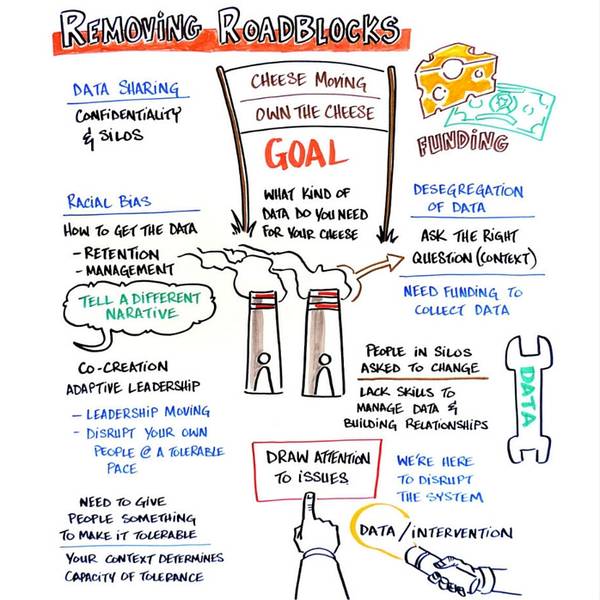 REMOVING ROADBLOCKS
DATA SHARING
CONFIDENTIALITY
& SILOS
CHEESE MOVING
OWN THE CHEESE
GOAL
WHAT KIND OF
DATA DO YOU NEED
FOR YOUR CHEESE
FUNDING
RACIAL BIAS
HOW TO GET THE DATA
- RETENTION
- MANAGEMENT
TELL A DIFFERENT
NARATIVE
DESEGREGATION
OF DATA
ASK THE RIGHT
QUESTION (CONTEXT)
NEED FUNDING TO
COLLECT DATA
CO-CREATION
ADAPTIVE LEADERSHIP
- LEADERSHIP MOVING
- DISRUPT YOUR OWN
PEOPLE @ A TOLERABLE
PACE
PEOPLE IN SILOS
ASKED TO CHANGE
LACK SKILLS TO
MANAGE DATA &
BUILDING RELATIONSHIPS
DATA
DRAW ATTENTION
TO ISSUES
WE'RE HERE
TO DISRUPT
THE SYSTEM
NEED TO GIVE
PEOPLE SOMETHING
TO MAKE IT TOLERABLE
YOUR CONTEXT DETERMINES
CAPACITY OF TOLERANCE
DATA/INTERVENTION